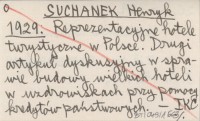 SUCHANEK Henryk
1929. Reprezentacyjne hotele
turystyczne w Polsce. Drugi
artykuł dyskusyjny w spra-
wie budowy wielkich hoteli
w uzdrowiskach przy pomocy
kredytów państwowych. — IKC